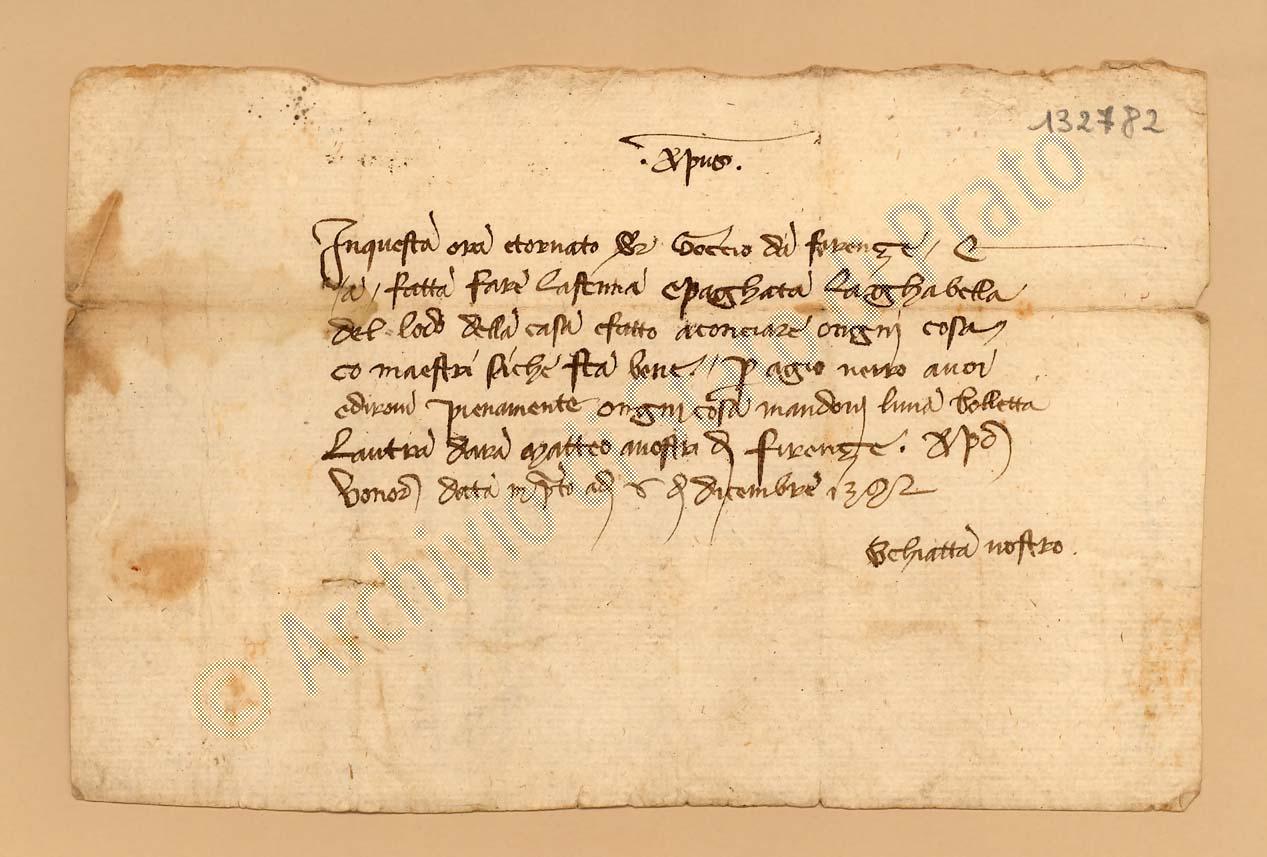 132782
·xpus·
Inquesta ora etornato da firenze / E
/a/ fatta fare la ferma epaghata laghabella
del lodo della casa efatto aconciare ongni cosa
co maestri siche sta bene / p agio verro avoi
edirovi pienamente ongni cosa mandovi luna bolletta
Lautra dara Matteo avostri d firenze. xpo
data in prto ad 6 d dicembre 1392
Schiatta vostro.
© Archivio di Stato di Prato